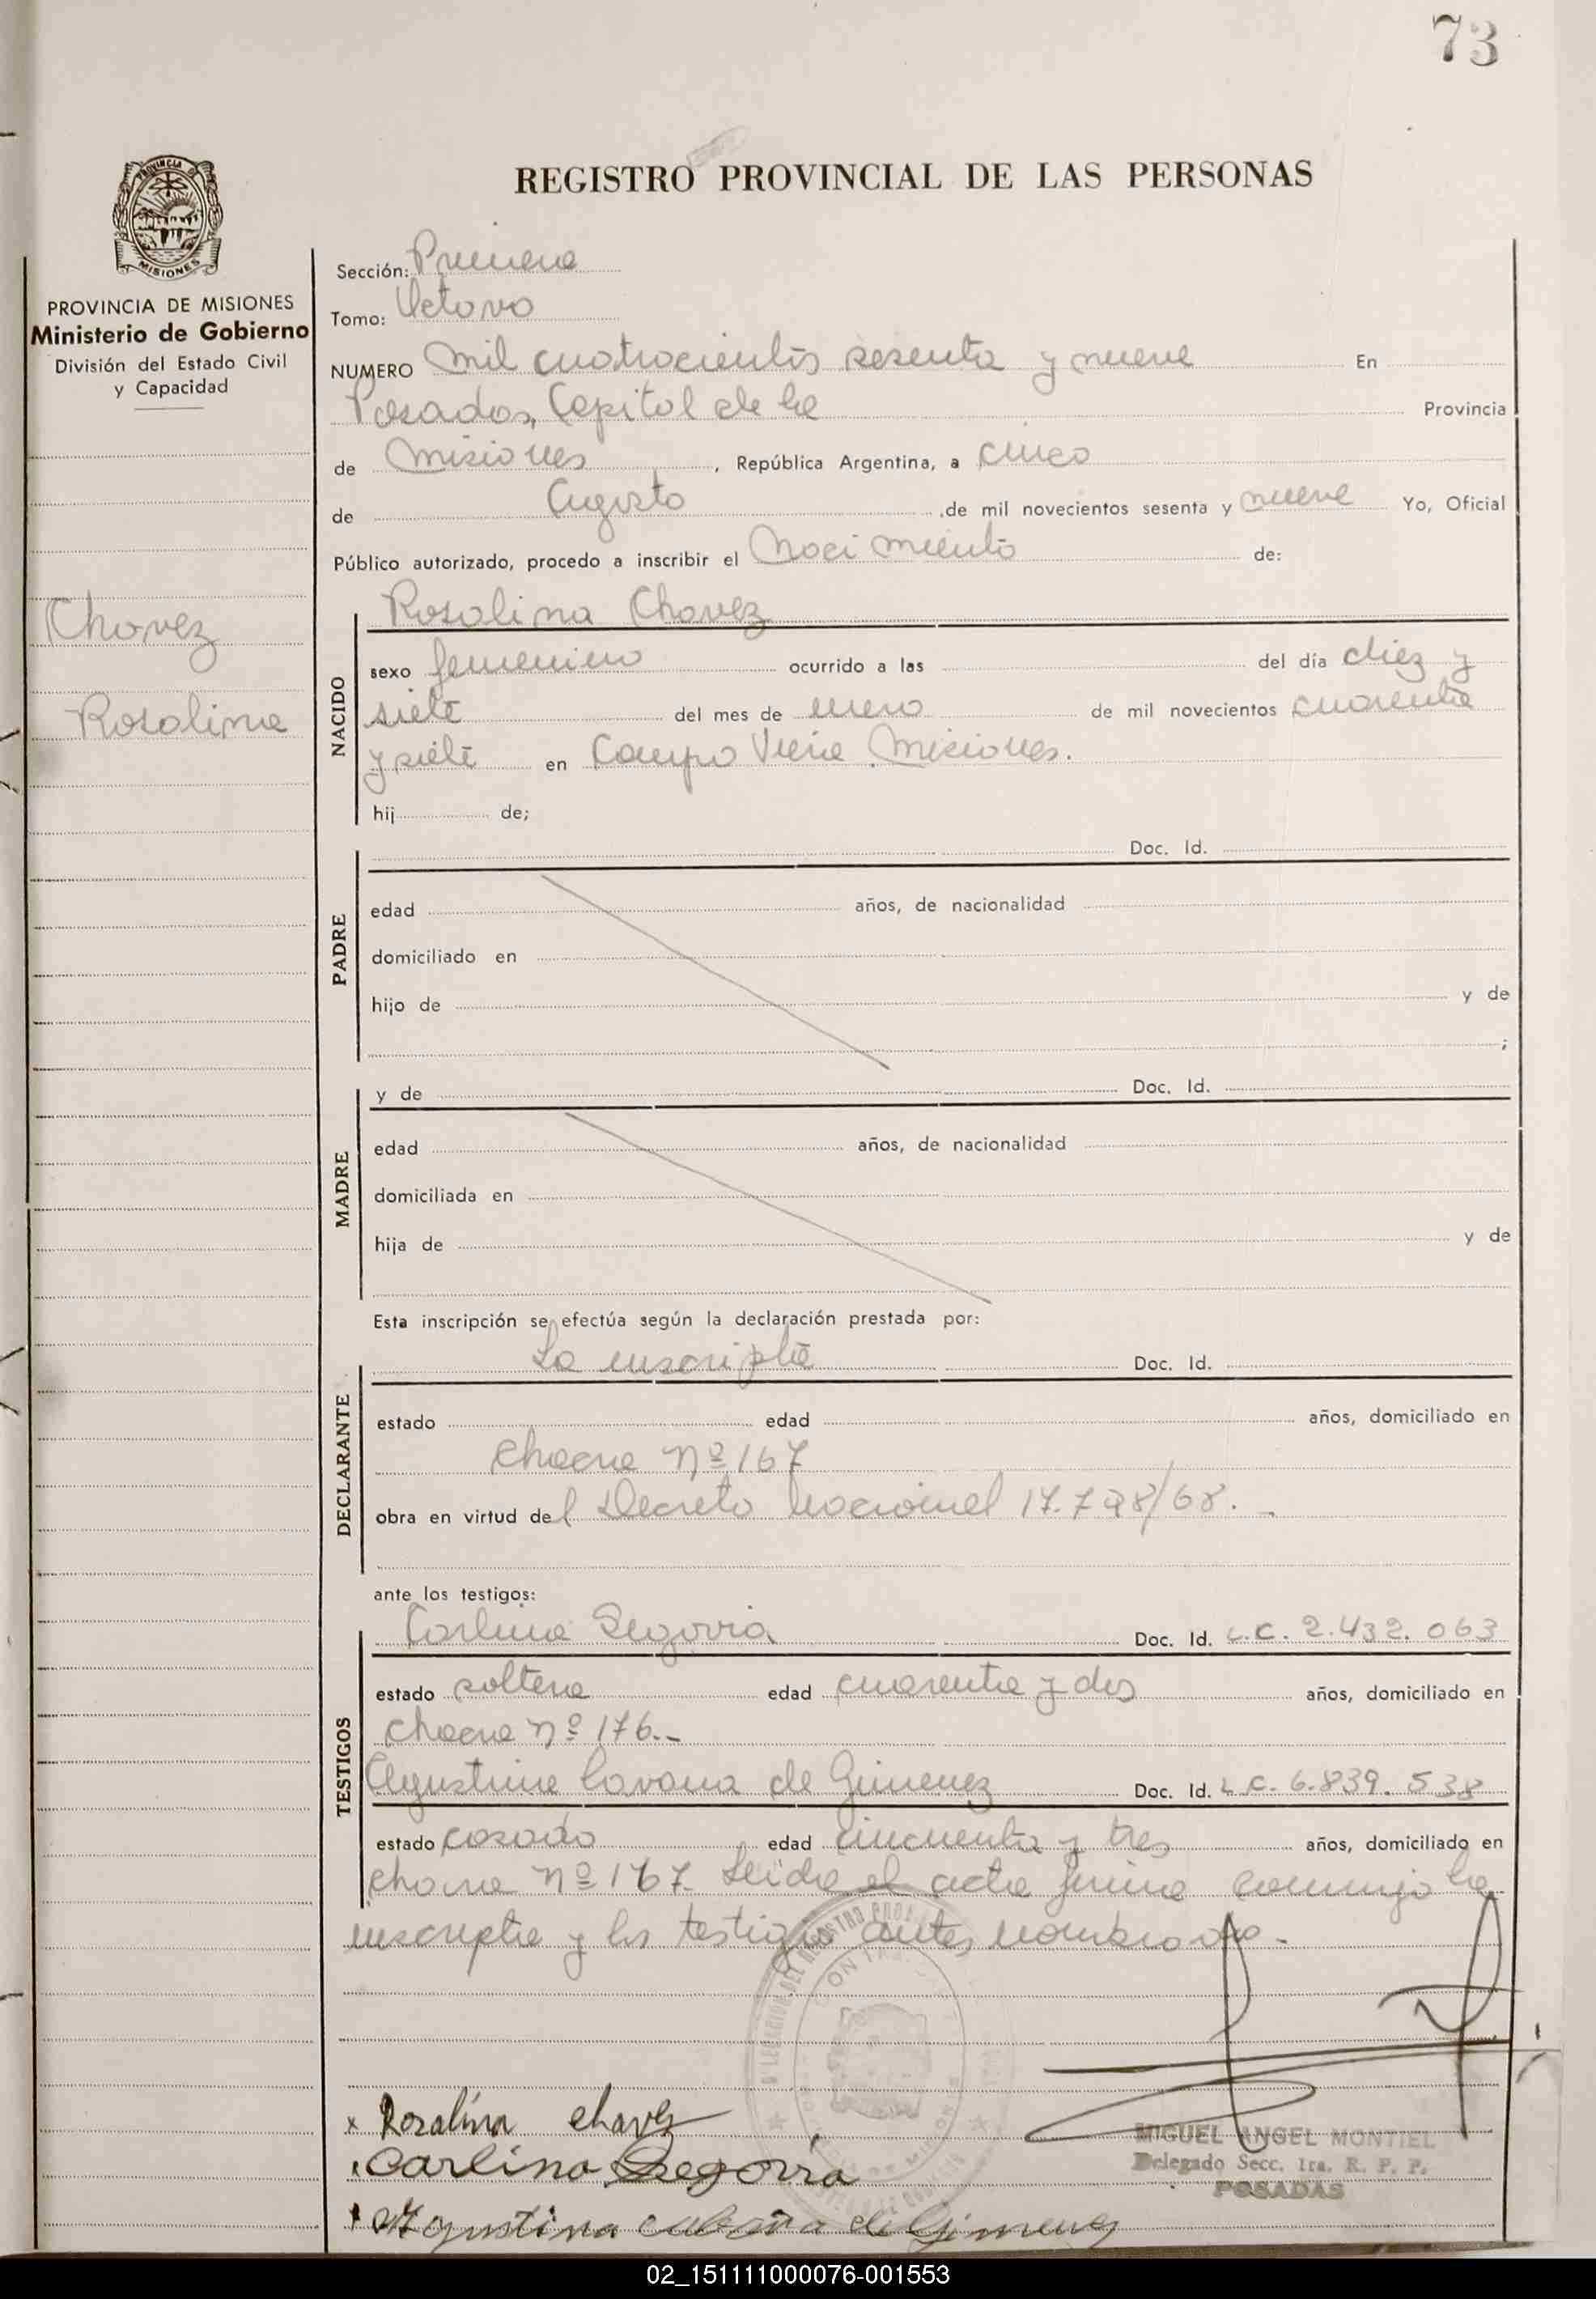 73
REGISTRO PROVINCIAL DE LAS PERSONAS
PROVINCIA DE MISIONES
Ministerio de Gobierno
División del Estado Civil
y Capacidad
Chavez
Rosalina
Sección: Primera
Tomo: Octavo
NUMERO mil cuatrocientos sesenta y nueve En
Posadas, Capital de la Provincia
de Misiones, República Argentina, a cinco
de Agosto de mil novecientos sesenta y nueve Yo, Oficial
Público autorizado, procedo a inscribir el Nacimiento de:
NACIDO
Rosalina Chavez
sexo femenino ocurrido a las del día diez y
siete del mes de enero de mil novecientos cuarenta
y siete en Campo Viera Misiones.
hij de;
PADRE
Doc. Id.
edad años, de nacionalidad
domiciliado en
hijo de y de
;
MADRE
y de Doc. Id.
edad años, de nacionalidad
domiciliada en
hija de y de
Esta inscripción se efectúa según la declaración prestada por:
DECLARANTE
La inscripta Doc. Id.
estado edad años, domiciliado en
Chacra Nº 167
obra en virtud del Decreto Nacional 17.798/68.-
ante los testigos:
TESTIGOS
Carlina Segovia Doc. Id. L.C. 2.432.063
estado soltera edad cuarenta y dos años, domiciliado en
Chacra Nº 176.-
Agustina de Gimenez Doc. Id. L.C. 6.839.538
estado casada edad cincuenta y tres años, domiciliado en
chacra Nº 167. Leida el acta firma conmigo la
inscripta y los testigos antes nombrados.-
x Rosalina chavez
Carlina Segovia
Agustina de Gimenez
MIGUEL ANGEL MONTIEL
Delegado Secc. 1ra. R. P. P.
POSADAS
02_151111000076-001553